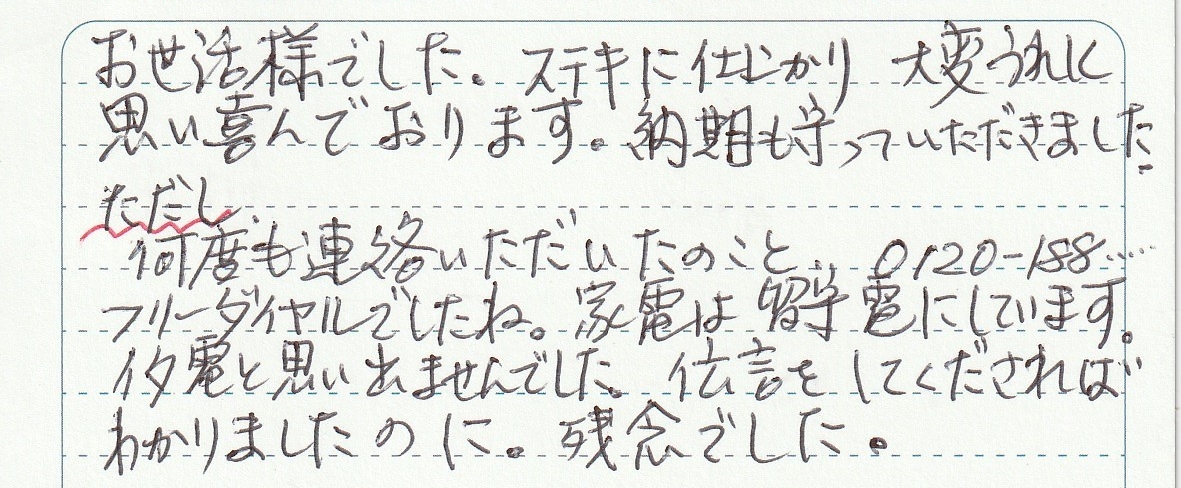 お世話様でした。ステキに仕上がり 大変うれしく
思い喜んでおります。納期も守っていただきました。
ただし、
何度も連絡いただいたのこと、0120-188……
フリーダイヤルでしたね。家電は留守電にしています。
イタ電と思い出ませんでした。伝言をしてくだされば
わかりましたのに。残念でした。